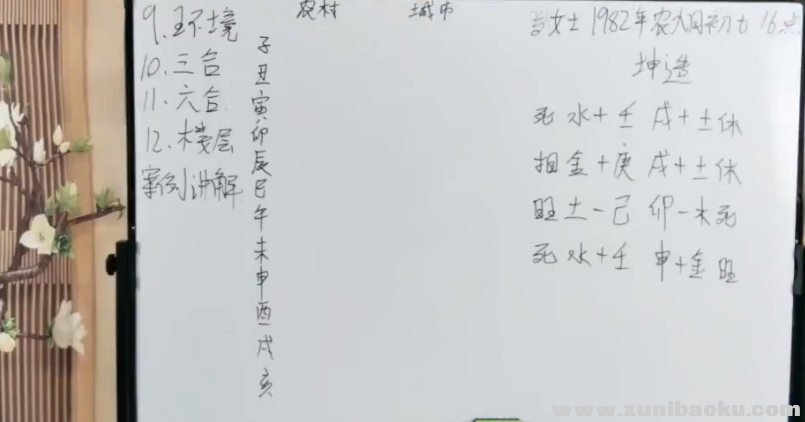 9.环境
10.三合
11.六合
12.楼层
案例讲解
农村 城市
子
丑
寅
卯
辰
巳
午
未
申
酉
戌
亥
女士 1982年农 16点
坤造
死 水+壬 戌+土休
相 金+庚 戌+土休
旺 土-己 卯-木死
死 水+壬 申+金 旺
www.xunibaoku.com